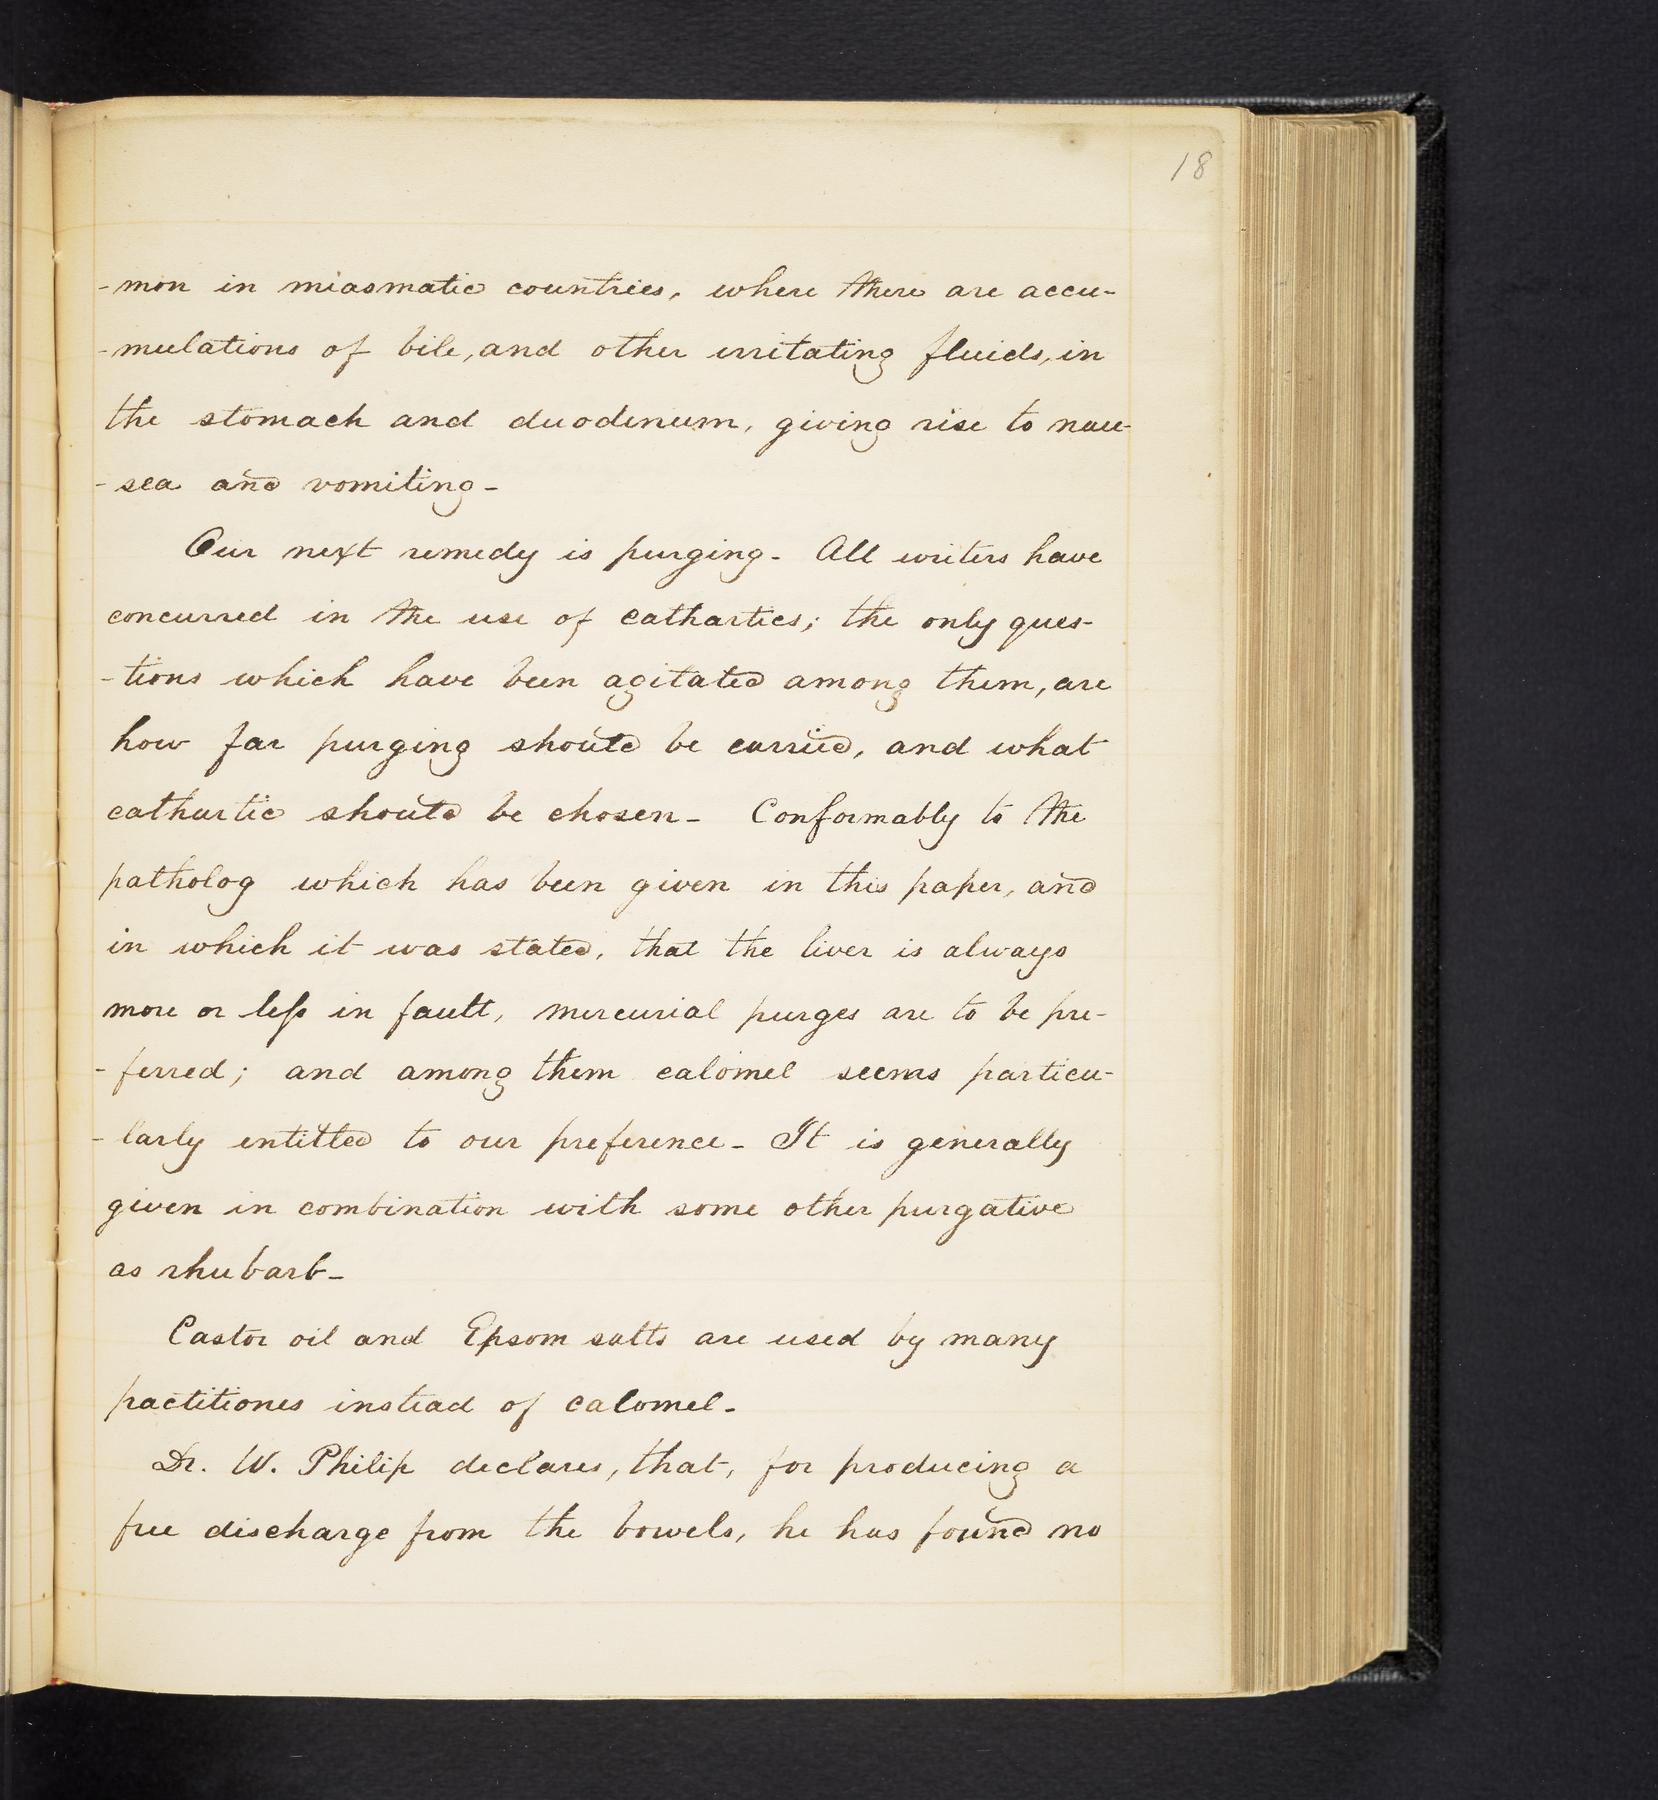 18
-mon in miasmatic countries, where there are accu-
-mulations of bile, and other irritating fluids, in
the stomach and duodenum, giving rise to nau-
-sea and vomiting-
Our next remedy is purging- All writers have
concurred in the use of cathartics; the only ques-
-tions which have been agitated among them, are
how far purging should be carried, and what
cathartic should be chosen- Conformably to the
patholog which has been given in this paper, and
in which it was stated, that the liver is always
more or less in fault, mercurial purges are to be pre-
-ferred; and among them calomel seems particu-
-larly entitled to our preference- It is generally
given in combination with some other purgative
as rhubarb-
Castor oil and Epsom salts are used by many
pactitiones instead of calomel-
Dr. W. Philip declares, that, for producing a
free discharge from the bowels, he has found no